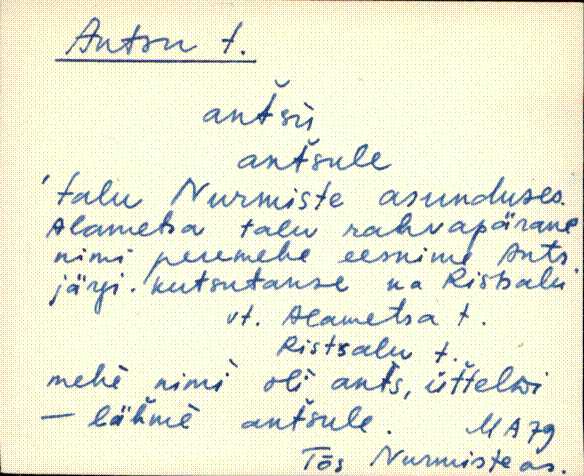 Antsu t.
antšù
antšule
'talu Nurmiste asunduses.
Alametsa talu rahvapärane
nimi peremehe eesnime Ants
järgi. Kutsutakse ka Ristsalu
vt. Alametsa t.
Ristsalu t.
mehè nimì olì antš, üťtelvi
— lähmè antšule. MA79
Tõs Nurmiste as.